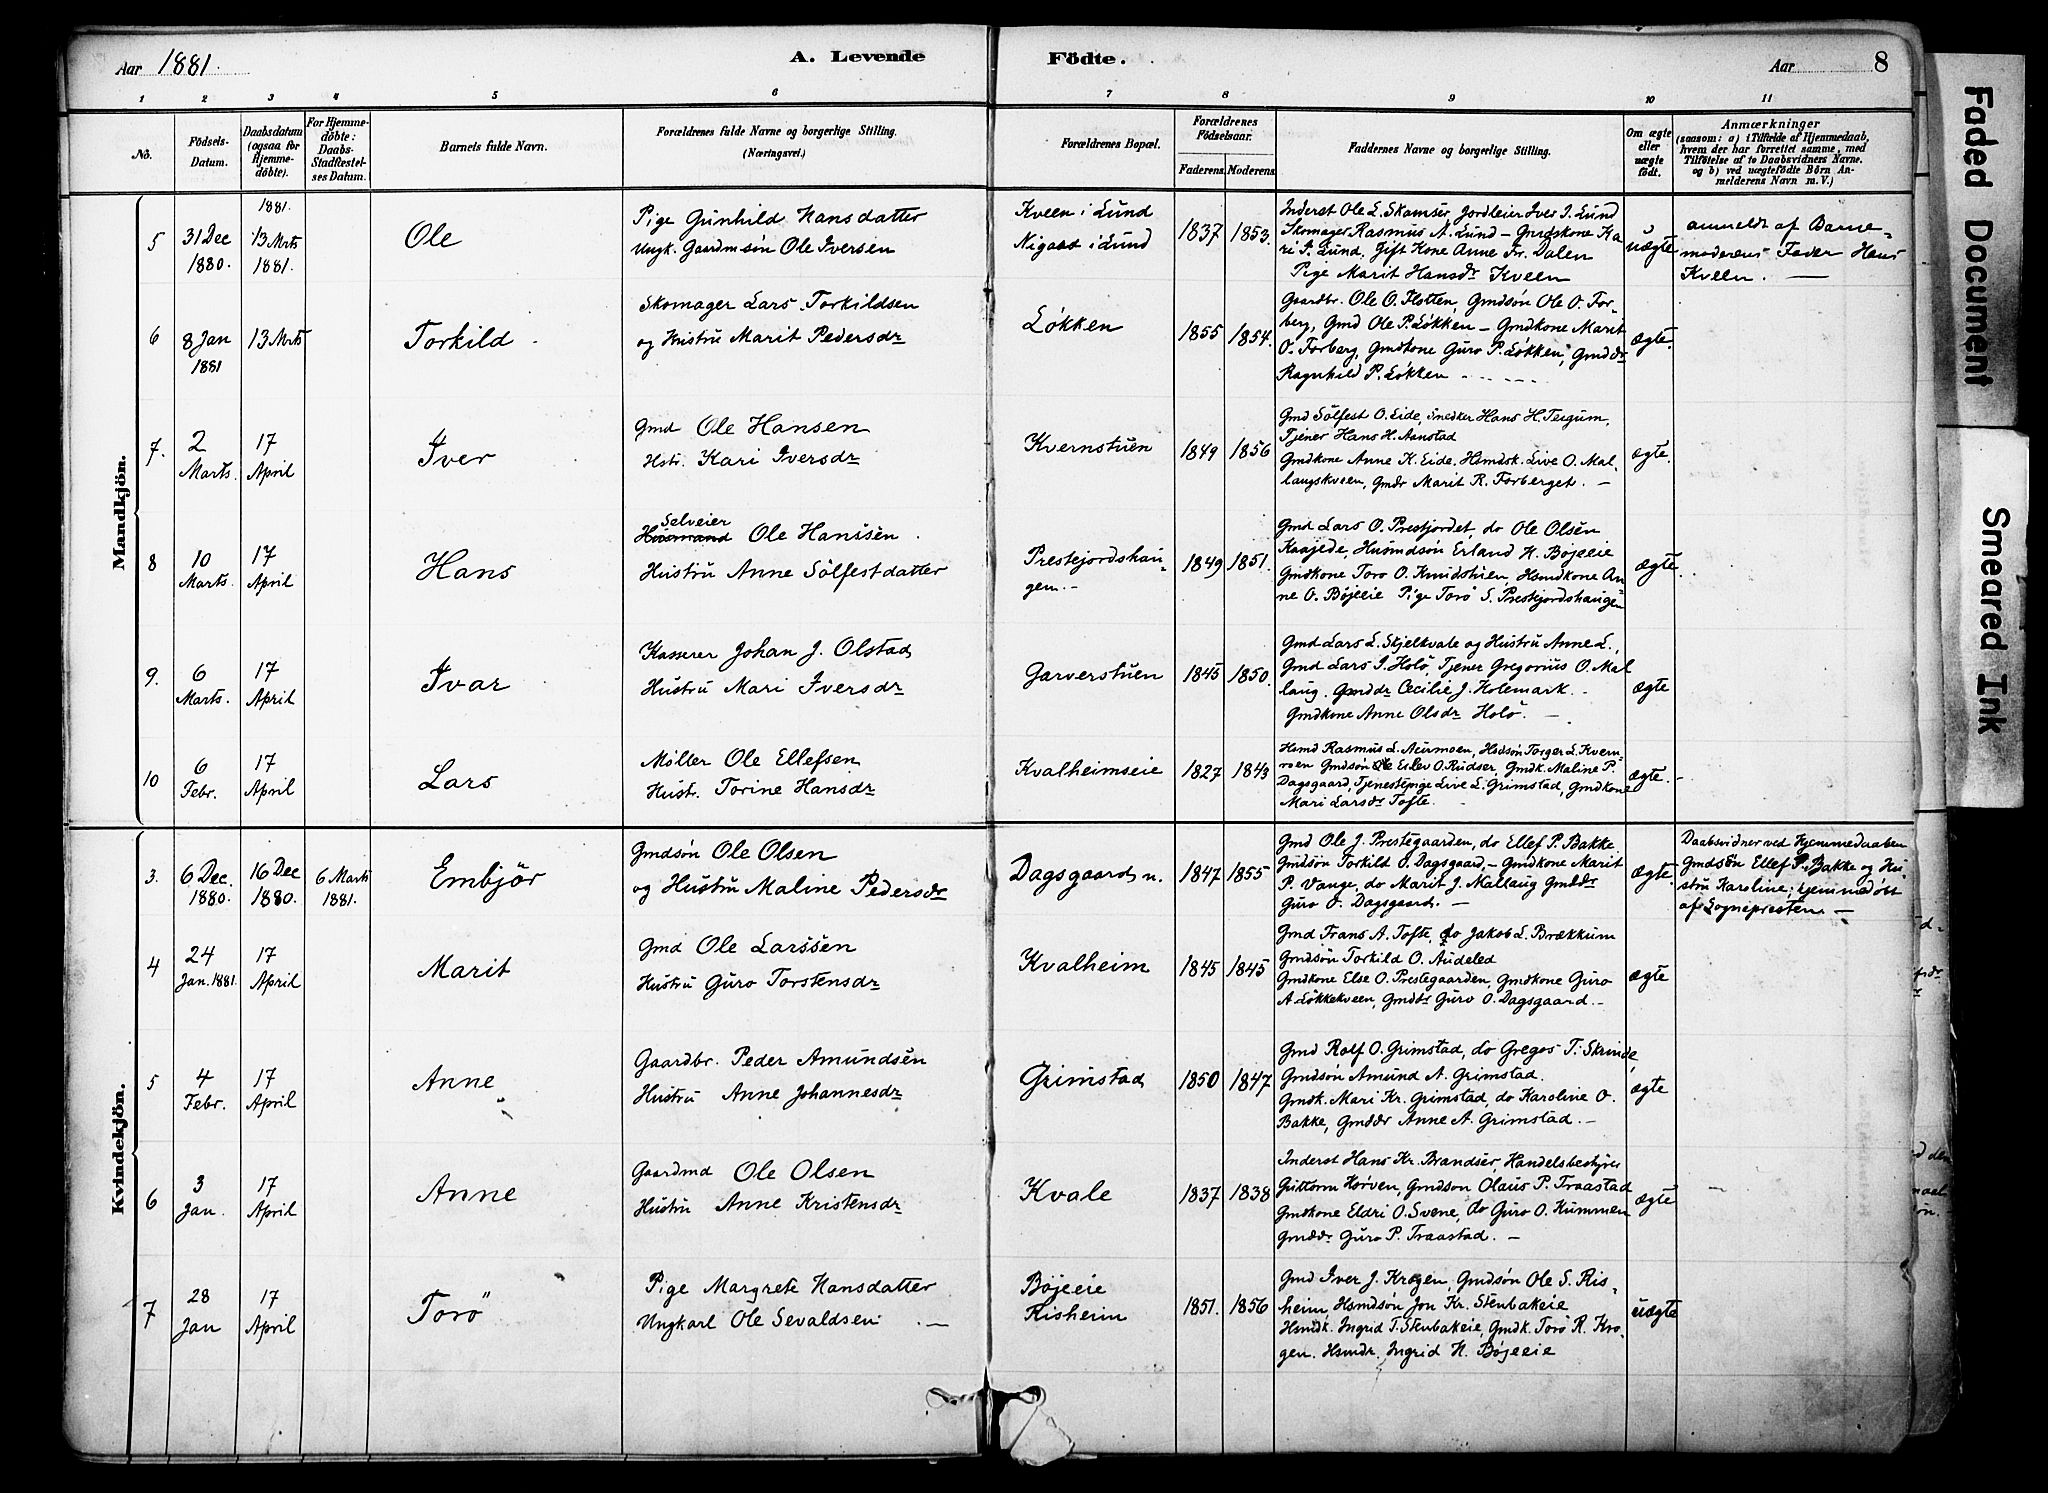 Aar 1881.
A. Levende Födte.
Aar 8
1 2 3 4 5 6 7 8 9 10 11
No.
Födsels-Datum.
Daabsdatum (ogsaa for Hjemmedöbte).
For Hjemmedöbte: Daabs-Stadfæstelses Datum.
Barnets fulde Navn.
Forældrenes fulde Navne og borgerlige Stilling.
(Næringsvei.)
Forældrenes Bopæl.
Forældrenes Födselsaar.
Faderens Moderens
Faddernes Navne og borgerlige Stilling.
Om ægte eller uægte födt.
Anmærkninger
(saasom: a) i Tilfælde af Hjemmedaab, hvem der har forrettet samme, med Tilföielse af to Daabsvidners Navne. og b) ved uægtefödte Börn Anmelderens Navn m. V.)
Mandkjön.
5 31 Dec 1880. 1881. 13 Mrts 1881. Ole
Pige Gunhild Hansdatter
Ungk. Gaardmsön Ole Iversen
Kveen i Lund
Nigard i Lund
1837 1853.
Inderst Ole L. Skamser, Jordleier Iver I. Lund
Skomager Rasmus A. Lund – Gmdskone Ka
ri P. Lund, Gift Kone Anne Fr. Dalen
Pige Marit Hansdr Kveen
uægte
anmeldt af Barne-
moderens Fader Hans
Kveen. —
6 8 Jan 1881 13 Mrts Torkild
Skomager Lars Torkildsen
og Hustru Marit Pedersdr
Løkken
1855 1854.
Gaardbr. Ole O. Flotten, Gmdsön Ole O. For-
berg, Gmd Ole P. Løkken – Gmdkone Marit
O. Forberg, Gmdkone Guro P. Løkken, Gmddr
Ragnhild P. Løkken
ægte.
7. 2 Marts. 17 April Iver
Gmd Ole Hansen
Hstr. Kari Iversdr
Kvernstuen
1849 1856
Gmd Sölfest O. Eide, Snedker Hans H. Teigum,
Tjener Hans H. Aanstad
Gmdkone Anne K. Eide, Hsmdsk. Live O. Mal-
laugskveen, Gmdr Marit R. Forberget. –
ægte.
8 10 Marts. 17 April Hans
Selveier
Husmand Ole Hanssen.
Hustru Anne Sölfestdatter
Prestejordshau-
gen. –
1849 1851.
Gmd Lars O. Prestjordet, do Ole Olsen
Kaajede, Husmdsön Erland H. Bøjeeie
Gmdkone Toro O. Knudstuen, Hsmdkone An-
ne O. Bøjeeie Pige Torö S. Prestejordshaugen
ægte.
9. 6 Marts. 17 April Ivar
Kasserer Johan J. Olstad
Hustru Mari Iversdr
Garverstuen
1845 1850.
Gmd Lars L. Skjelkvale og Hustru Anne L.,
Gmd Lars I. Holö, Tjener Gregorius O. Mal
laug. Gmddr Cecilie J. Holemark. –
Gmdkone Anne Olsdr Holö. –
ægte
10 6 Febr. 17 April Lars
Møller Ole Ellefsen
Hust. Torine Hansdr
Kvalheimseie
1827 1843
Hsmd Rasmus L. Aurmoen, Hsdsön Torger L. Kvern-
moen Gmdsön Ole Esløv O. Rudser, Gmdk. Maline P.
Dagsgaard, Tjenestepige Live L. Grimstad, Gmdkone
Mari Larsdr Tofte.
ægte. –
Kvindekjön.
3. 6 Dec. 1880. 16 Dec 1880. 6 Marts 1881. Embjör
Gmdsön Ole Olsen
og Hustru Maline Pedersdr
Dagsgaard n.
1847 1855
Gmd Ole J. Prestegaarden, do Ellef P. Bakke
Gmdsön Torkild O. Dagsgaard, – Gmdkone Marit
P. Vange, do Marit J. Mallaug Gmddr
Guro O. Dagsgaard. –
ægte.
Daabsvidner ved Hjemmedaaben
Gmdsön Ellef P. Bakke og Hu-
stru Karoline; hjemmedøbt
af Sognepresten. –
4 24 Jan. 1881. 17 April Marit
Gmd Ole Larssen
Hustru Guro Torstensdr
Kvalheim
1845 1845
Gmd Frans A. Tofte, do Jakob L. Brækkum
Gmdsön Torkild O. Audeled
Gmdkone Else O. Prestegaarden, Gmdkone Guro
A. Løkkekveen, Gmddr Guro O. Dagsgaard. –
ægte
5 4 Febr. 17 April Anne
Gaardbr. Peder Amundsen
Hustru Anne Johannesdr
Grimstad
1850 1847
Gmd Rolf O. Grimstad, do Gregos T. Skrinde,
Gmdsön Amund A. Grimstad.
Gmdk. Mari Kr. Grimstad, do Karoline O.
Bakke, Gmddr Anne A. Grimstad. –
ægte
6 3 Jan. 17 April Anne
Gaardmd Ole Olsen
Hustru Anne Kristensdr
Kvale
1837 1838
Inderst Hans Kr. Brandser, Handelsbestyrer
Guttorm Horven, Gmdsön Olaus P. Traastad
Gmdkone Eldri O. Svene, do Guro O. Kummen
Gmddr Guro P. Traastad. –
ægte
–
7 28 Jan 17 April Torö
Pige Margrete Hansdatter
Ungkarl Ole Sevaldsen. –
Bøjeeie
Risheim
1851. 1856
Gmd Iver J. Krogen, Gmdsön Ole S. Ris-
heim, Hsmdsön Jon Kr. Stenbakeie
Hsmdk. Ingrid T. Stenbakeie, Gmdk. Torö R. Kro-
gen. Hsmdr. Ingrid H. Bøjeeie
uægte
Faded Document
Smeared Ink